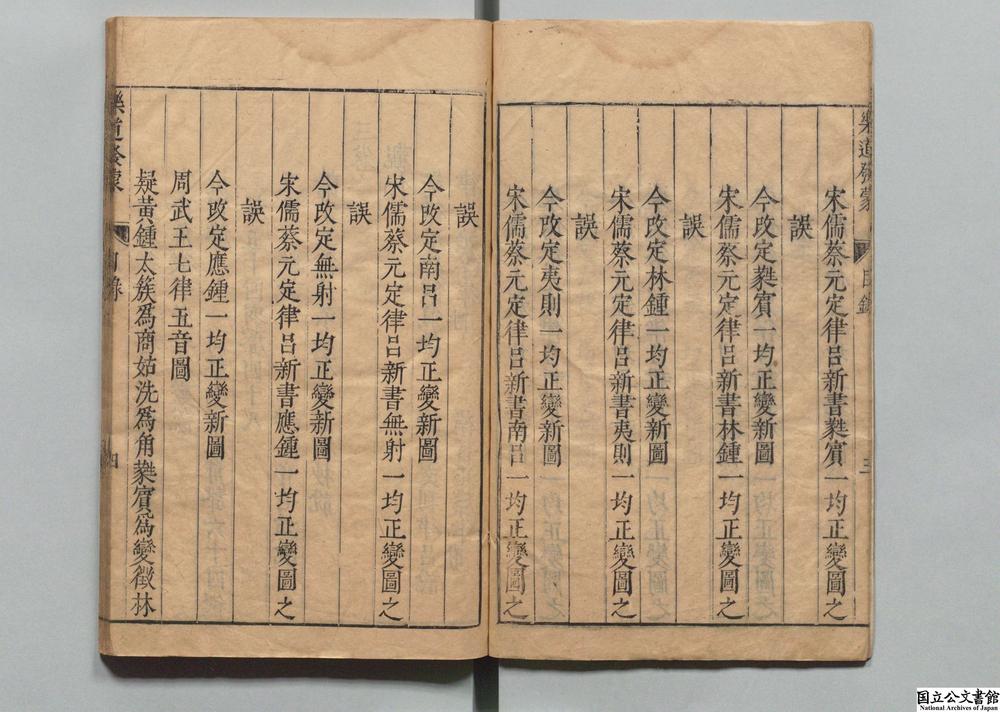 樂道發蒙
目錄
三
宋儒蔡元定律呂新書蕤賓一均正變圖之
誤
今改定蕤賓一均正變新圖
宋儒蔡元定律呂新書林鍾一均正變圖之
誤
今改定林鍾一均正變新圖
宋儒蔡元定律呂新書夷則一均正變圖之
誤
今改定夷則一均正變新圖
宋儒蔡元定律呂新書南呂一均正變圖之
誤
今改定南呂一均正變新圖
宋儒蔡元定律呂新書無射一均正變圖之
誤
今改定無射一均正變新圖
宋儒蔡元定律呂新書應鍾一均正變圖之
誤
今改定應鍾一均正變新圖
周武王七律五音圖
疑黃鍾太簇為商姑洗為角蕤賓為變徵林
樂道發蒙
目錄
四
国立公文書館
National Archives of Japan